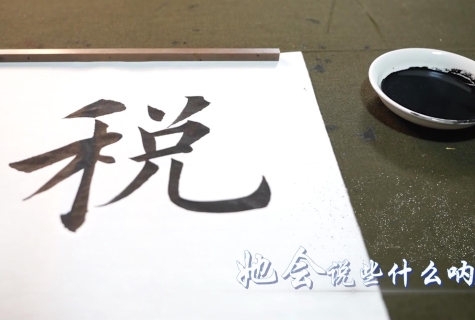 税
她会说些什么呐